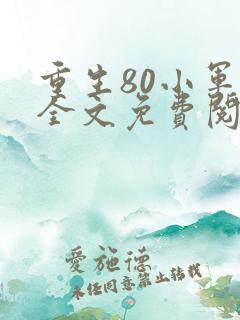 重生80小军
全文免费阅
爱施德
未经同意禁止转载